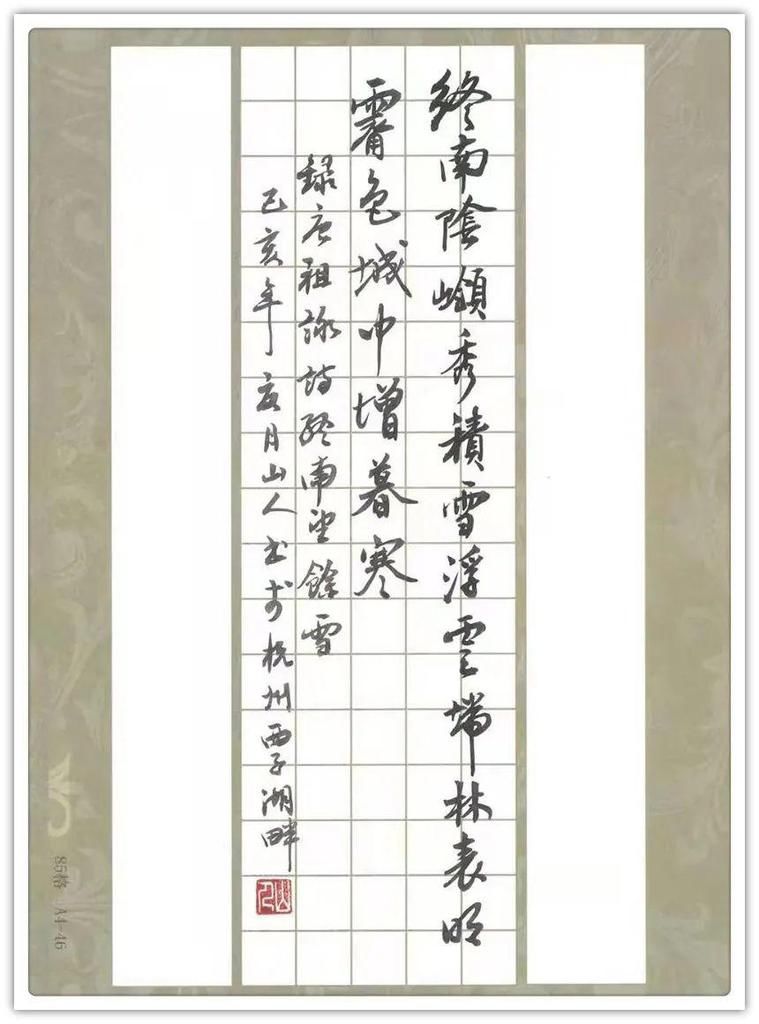 終南陰嶺秀積雪浮雲端林表明
霽色城中增暮寒
録唐祖詠詩終南望餘雪
己亥年亥月山人书於杭州西子湖畔
山人
85格 A4-46